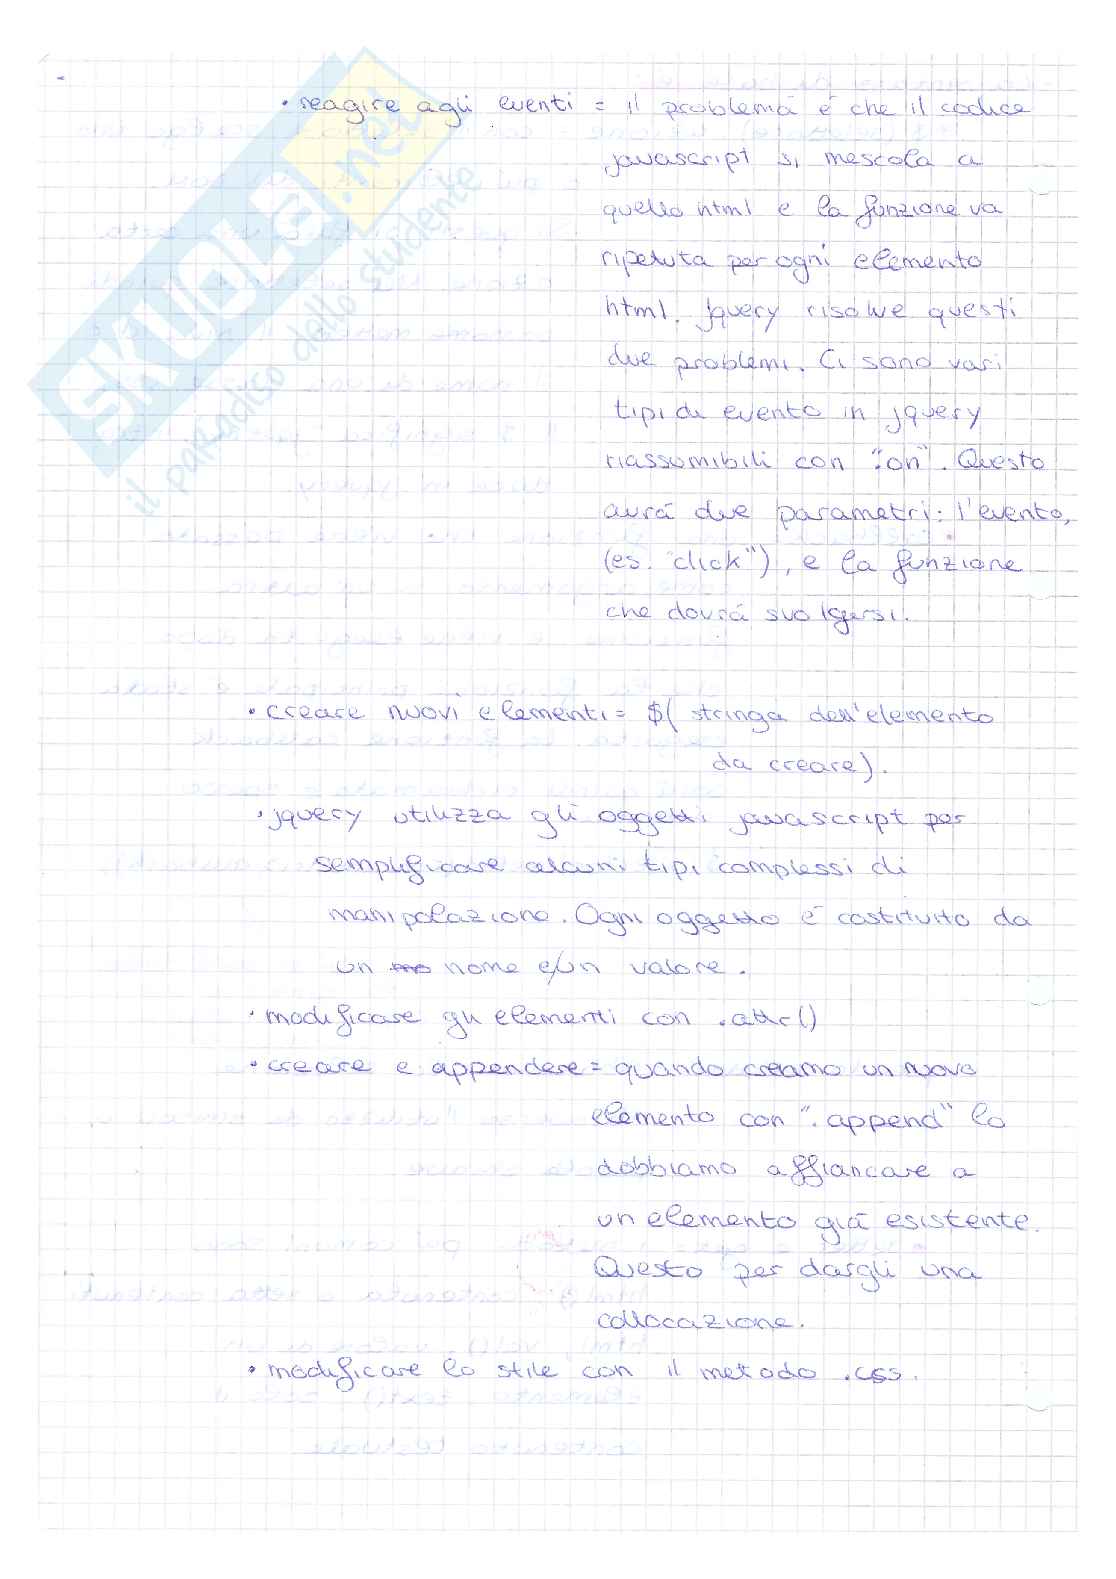 • reagire agli eventi = il problema è che il codice
javascript si mescola a
quello html e la funzione va
ripetuta per ogni elemento
html. jquery risolve questi
due problemi. Ci sono vari
tipi di evento in jquery
riassumibili con "on". Questo
avrà due parametri: l'evento,
(es. "click"), e la funzione
che dovrà svolgersi.
• creare nuovi elementi = $( stringa dell'elemento
da creare).
• jquery utilizza gli oggetti javascript per
semplificare alcuni tipi complessi di
manipolazione. Ogni oggetto è costituito da
un nome e/un valore.
• modificare gli elementi con .attr()
• creare e appendere = quando creamo un nuovo
elemento con ".append" lo
dobbiamo affiancare a
un elemento già esistente.
Questo per dargli una
collocazione.
• modificare lo stile con il metodo .css.
SKUOLA.net
il paradiso dello studente